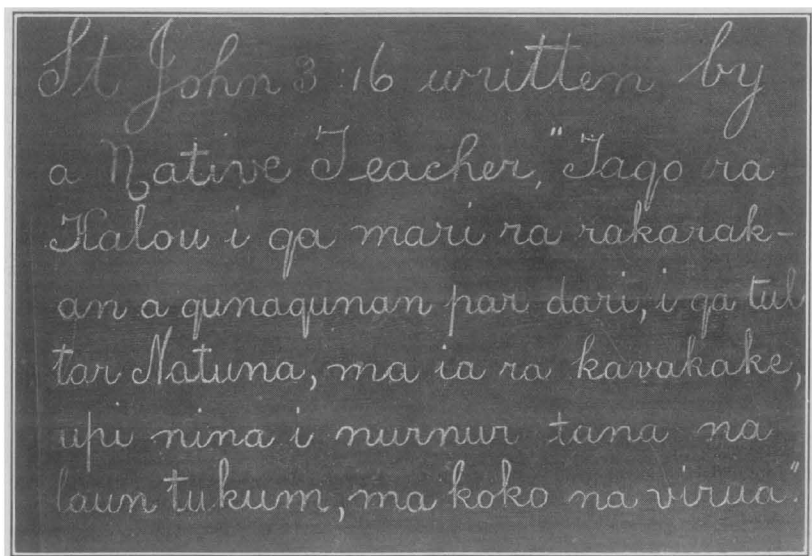 St John 3:16 written by
a Native Teacher, "Taqo ra
Kalou i qa mari ra rakarak-
an a qunaqunan par dari, i qa tul
tar Natuna, ma ia ra kavakake,
upi nina i nurnur tana na
laun tukum, ma koko na virua".